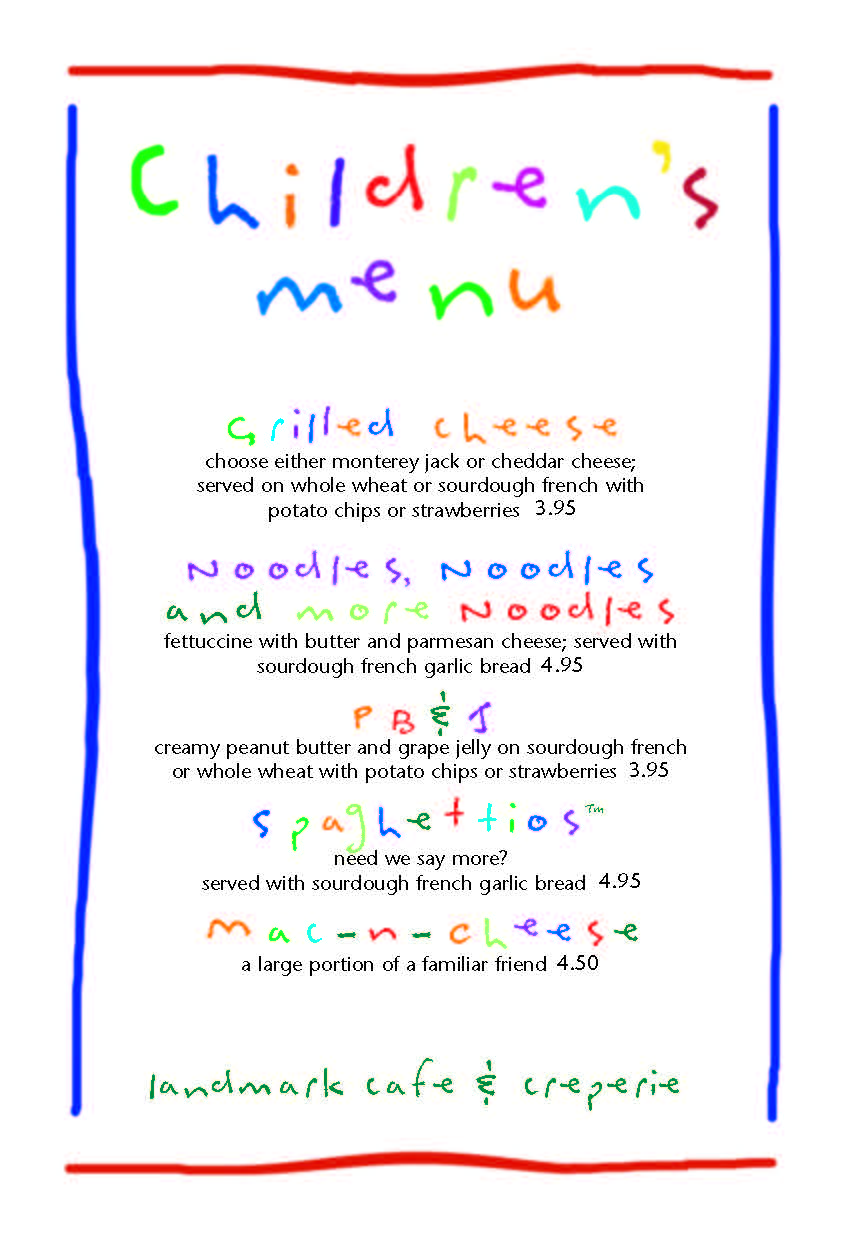 Children's
menu
Grilled cheese
choose either monterey jack or cheddar cheese;
served on whole wheat or sourdough french with
potato chips or strawberries 3.95
Noodles, Noodles
and more Noodles
fettuccine with butter and parmesan cheese; served with
sourdough french garlic bread 4.95
PB&J
creamy peanut butter and grape jelly on sourdough french
or whole wheat with potato chips or strawberries 3.95
spaghettios™
need we say more?
served with sourdough french garlic bread 4.95
mac-n-cheese
a large portion of a familiar friend 4.50
landmark cafe & creperie